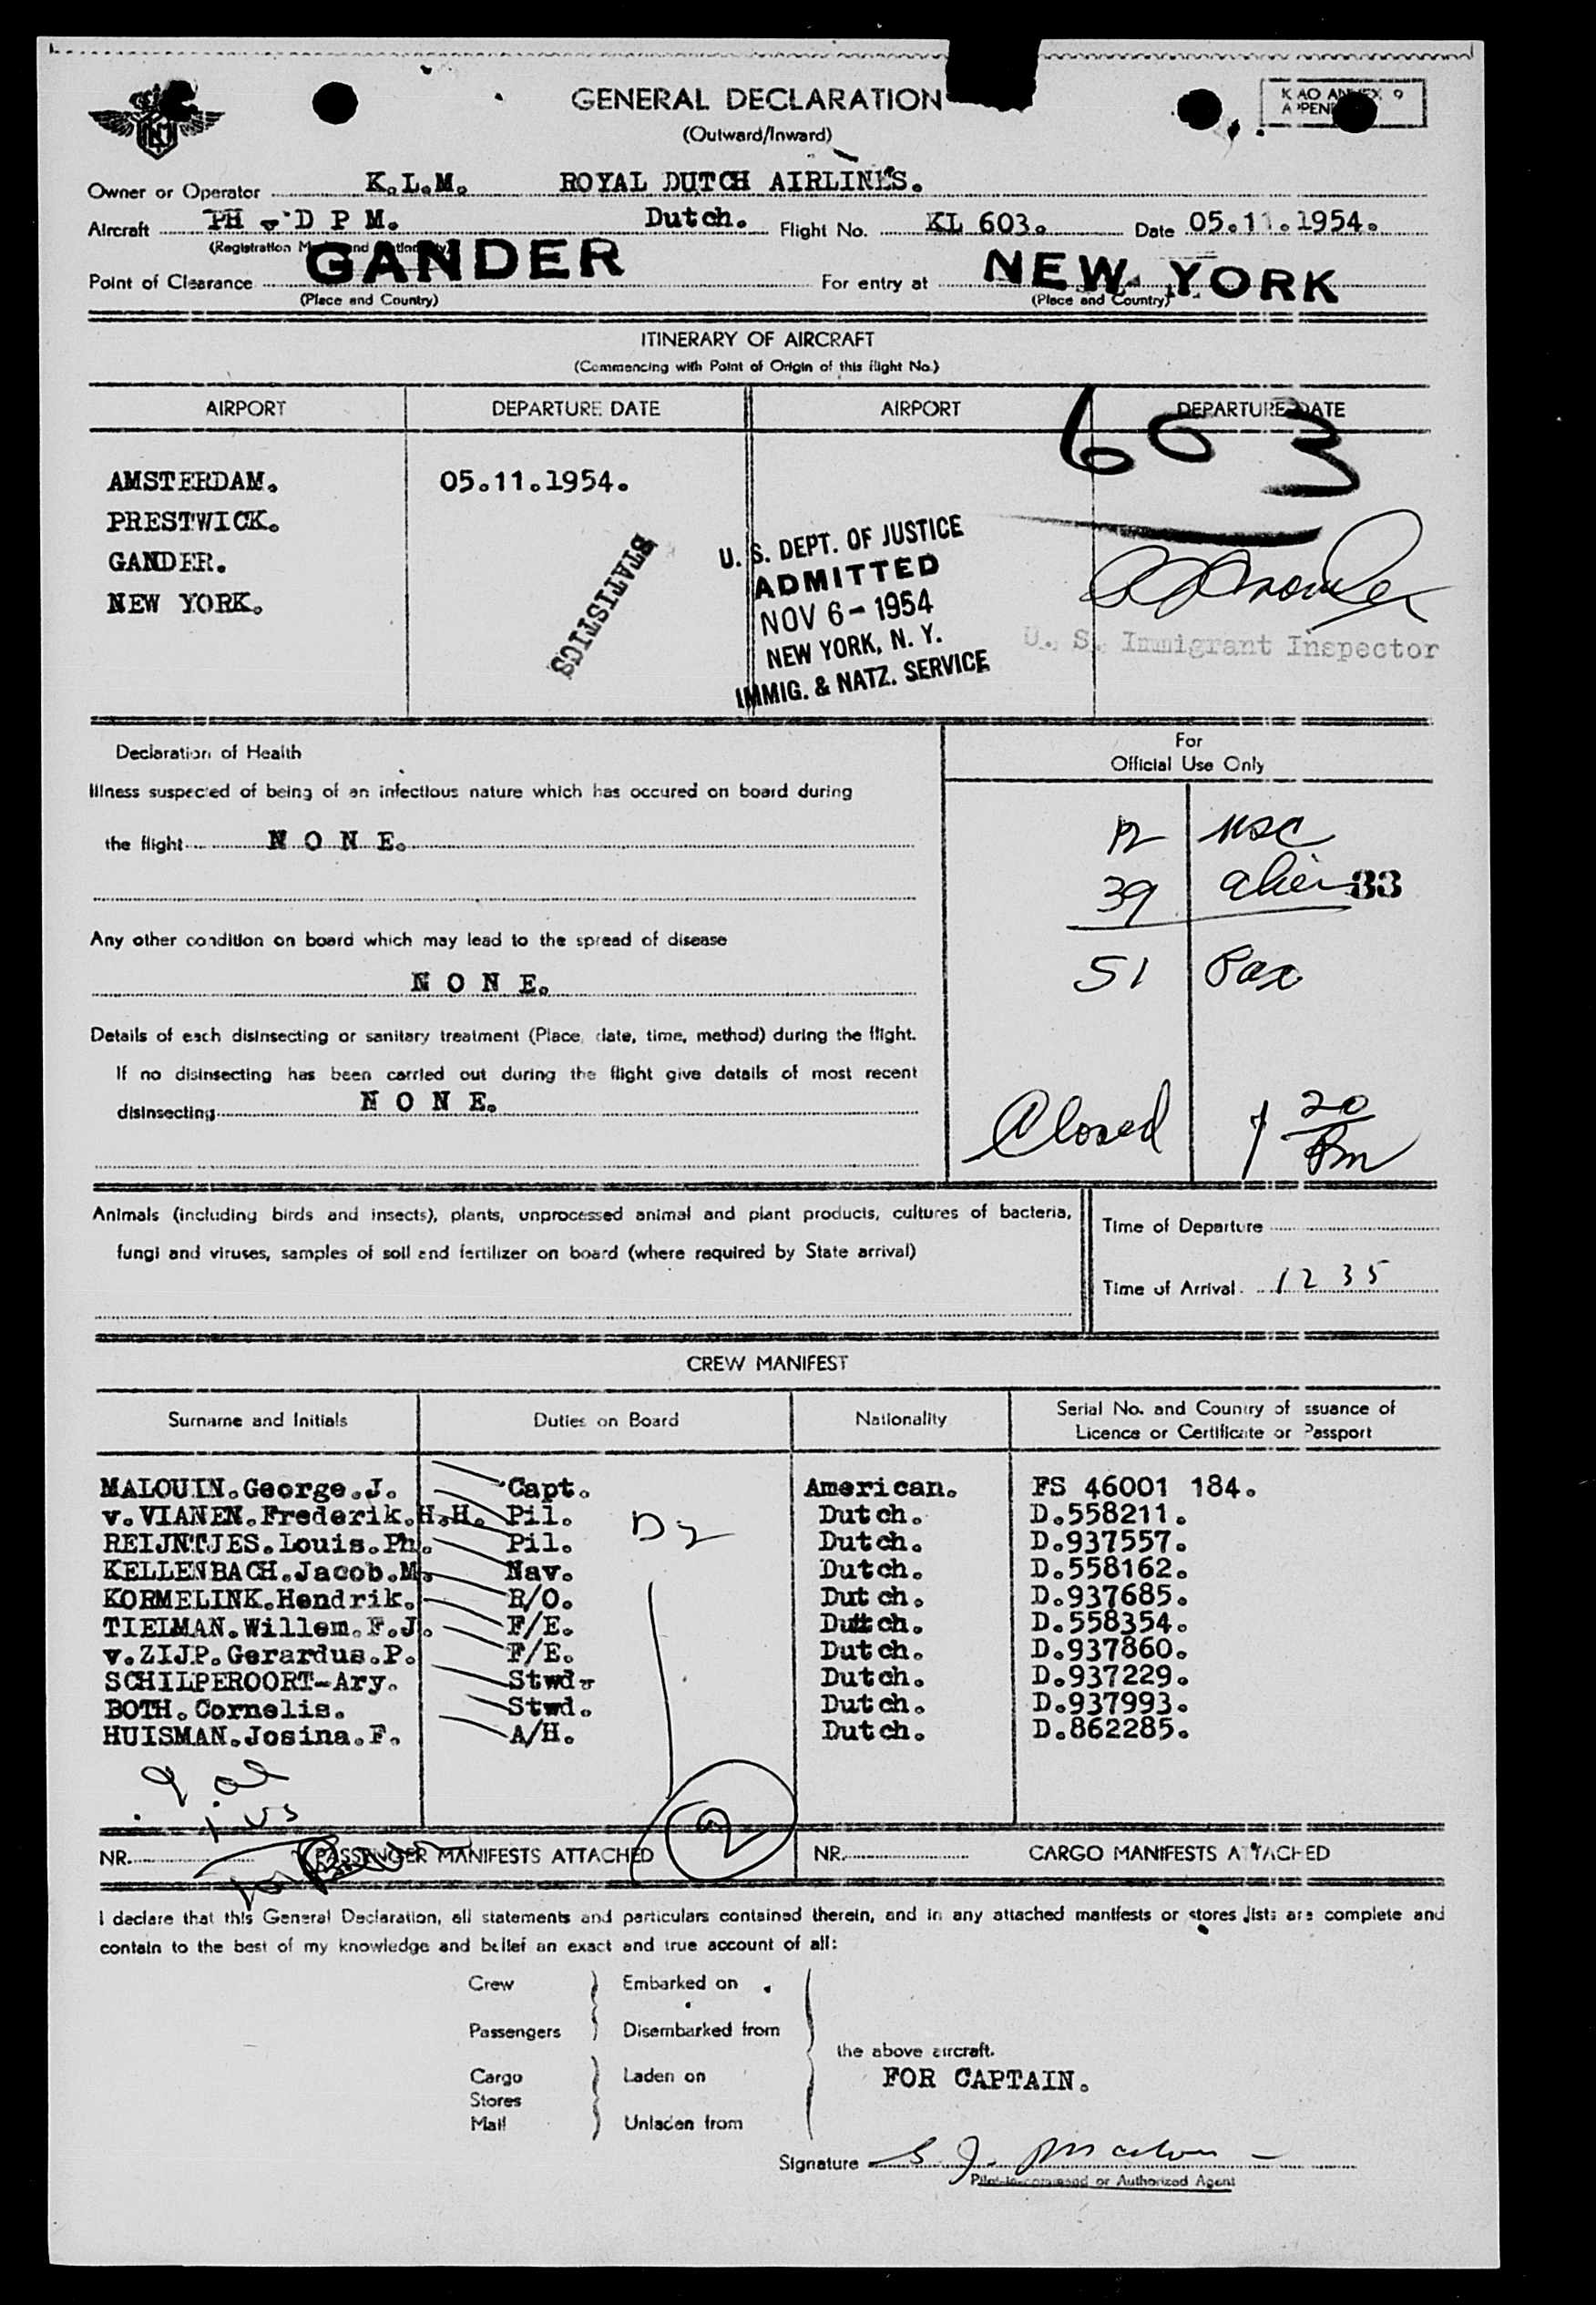 GENERAL DECLARATION
(Outward/Inward)
Owner or Operator K.L.M. ROYAL DUTCH AIRLINES.
Aircraft PH - D P M. Dutch. Flight No. KL 603. Date 05.11.1954.
Point of Clearance GANDER For entry at NEW YORK
(Place and Country) (Place and Country)
ITINERARY OF AIRCRAFT
(Commencing with Point of Origin of this flight No.)
AIRPORT DEPARTURE DATE AIRPORT DEPARTURE DATE
603
AMSTERDAM. 05.11.1954.
PRESTWICK.
GANDER.
NEW YORK.
STATISTICS
U. S. DEPT. OF JUSTICE
ADMITTED
NOV 6 - 1954
NEW YORK, N. Y.
IMMIG. & NATZ. SERVICE
U. S. Immigrant Inspector
Declaration of Health
For
Official Use Only
Illness suspected of being of an infectious nature which has occured on board during
the flight N O N E.
12 usc
39 alien 33
51 Pax
Any other condition on board which may lead to the spread of disease
N O N E.
Details of each disinsecting or sanitary treatment (Place, date, time, method) during the flight.
If no disinsecting has been carried out during the flight give details of most recent
disinsecting N O N E.
Closed 1 20 Pm
Animals (including birds and insects), plants, unprocessed animal and plant products, cultures of bacteria,
fungi and viruses, samples of soil and fertilizer on board (where required by State arrival)
Time of Departure
Time of Arrival 12 35
CREW MANIFEST
Surname and Initials Duties on Board Nationality Serial No. and Country of issuance of
Licence or Certificate or Passport
MALOUIN.George.J. Capt. American. FS 46001 184.
v.VIANEN.Frederik.H.H. Pil. Dutch. D.558211.
REIJNTJES.Louis.Ph. Pil. Dutch. D.937557.
KELLENBACH.Jacob.M. Nav. Dutch. D.558162.
KORMELINK.Hendrik. R/O. Dutch. D.937685.
TIELMAN.Willem.F.J. F/E. Dutch. D.558354.
v.ZIJP.Gerardus.P. F/E. Dutch. D.937860.
SCHILPEROORT-Ary. Stwd. Dutch. D.937229.
BOTH.Cornelis. Stwd. Dutch. D.937993.
HUISMAN.Josina.F. A/H. Dutch. D.862285.
D2
1 US
2
NR. PASSENGER MANIFESTS ATTACHED NR. CARGO MANIFESTS ATTACHED
I declare that this General Declaration, all statements and particulars contained therein, and in any attached manifests or stores lists are complete and
contain to the best of my knowledge and belief an exact and true account of all:
Crew Embarked on
Passengers Disembarked from
the above aircraft.
Cargo Laden on
FOR CAPTAIN.
Stores
Mail Unladen from
Signature
Pilot-in-command or Authorized Agent